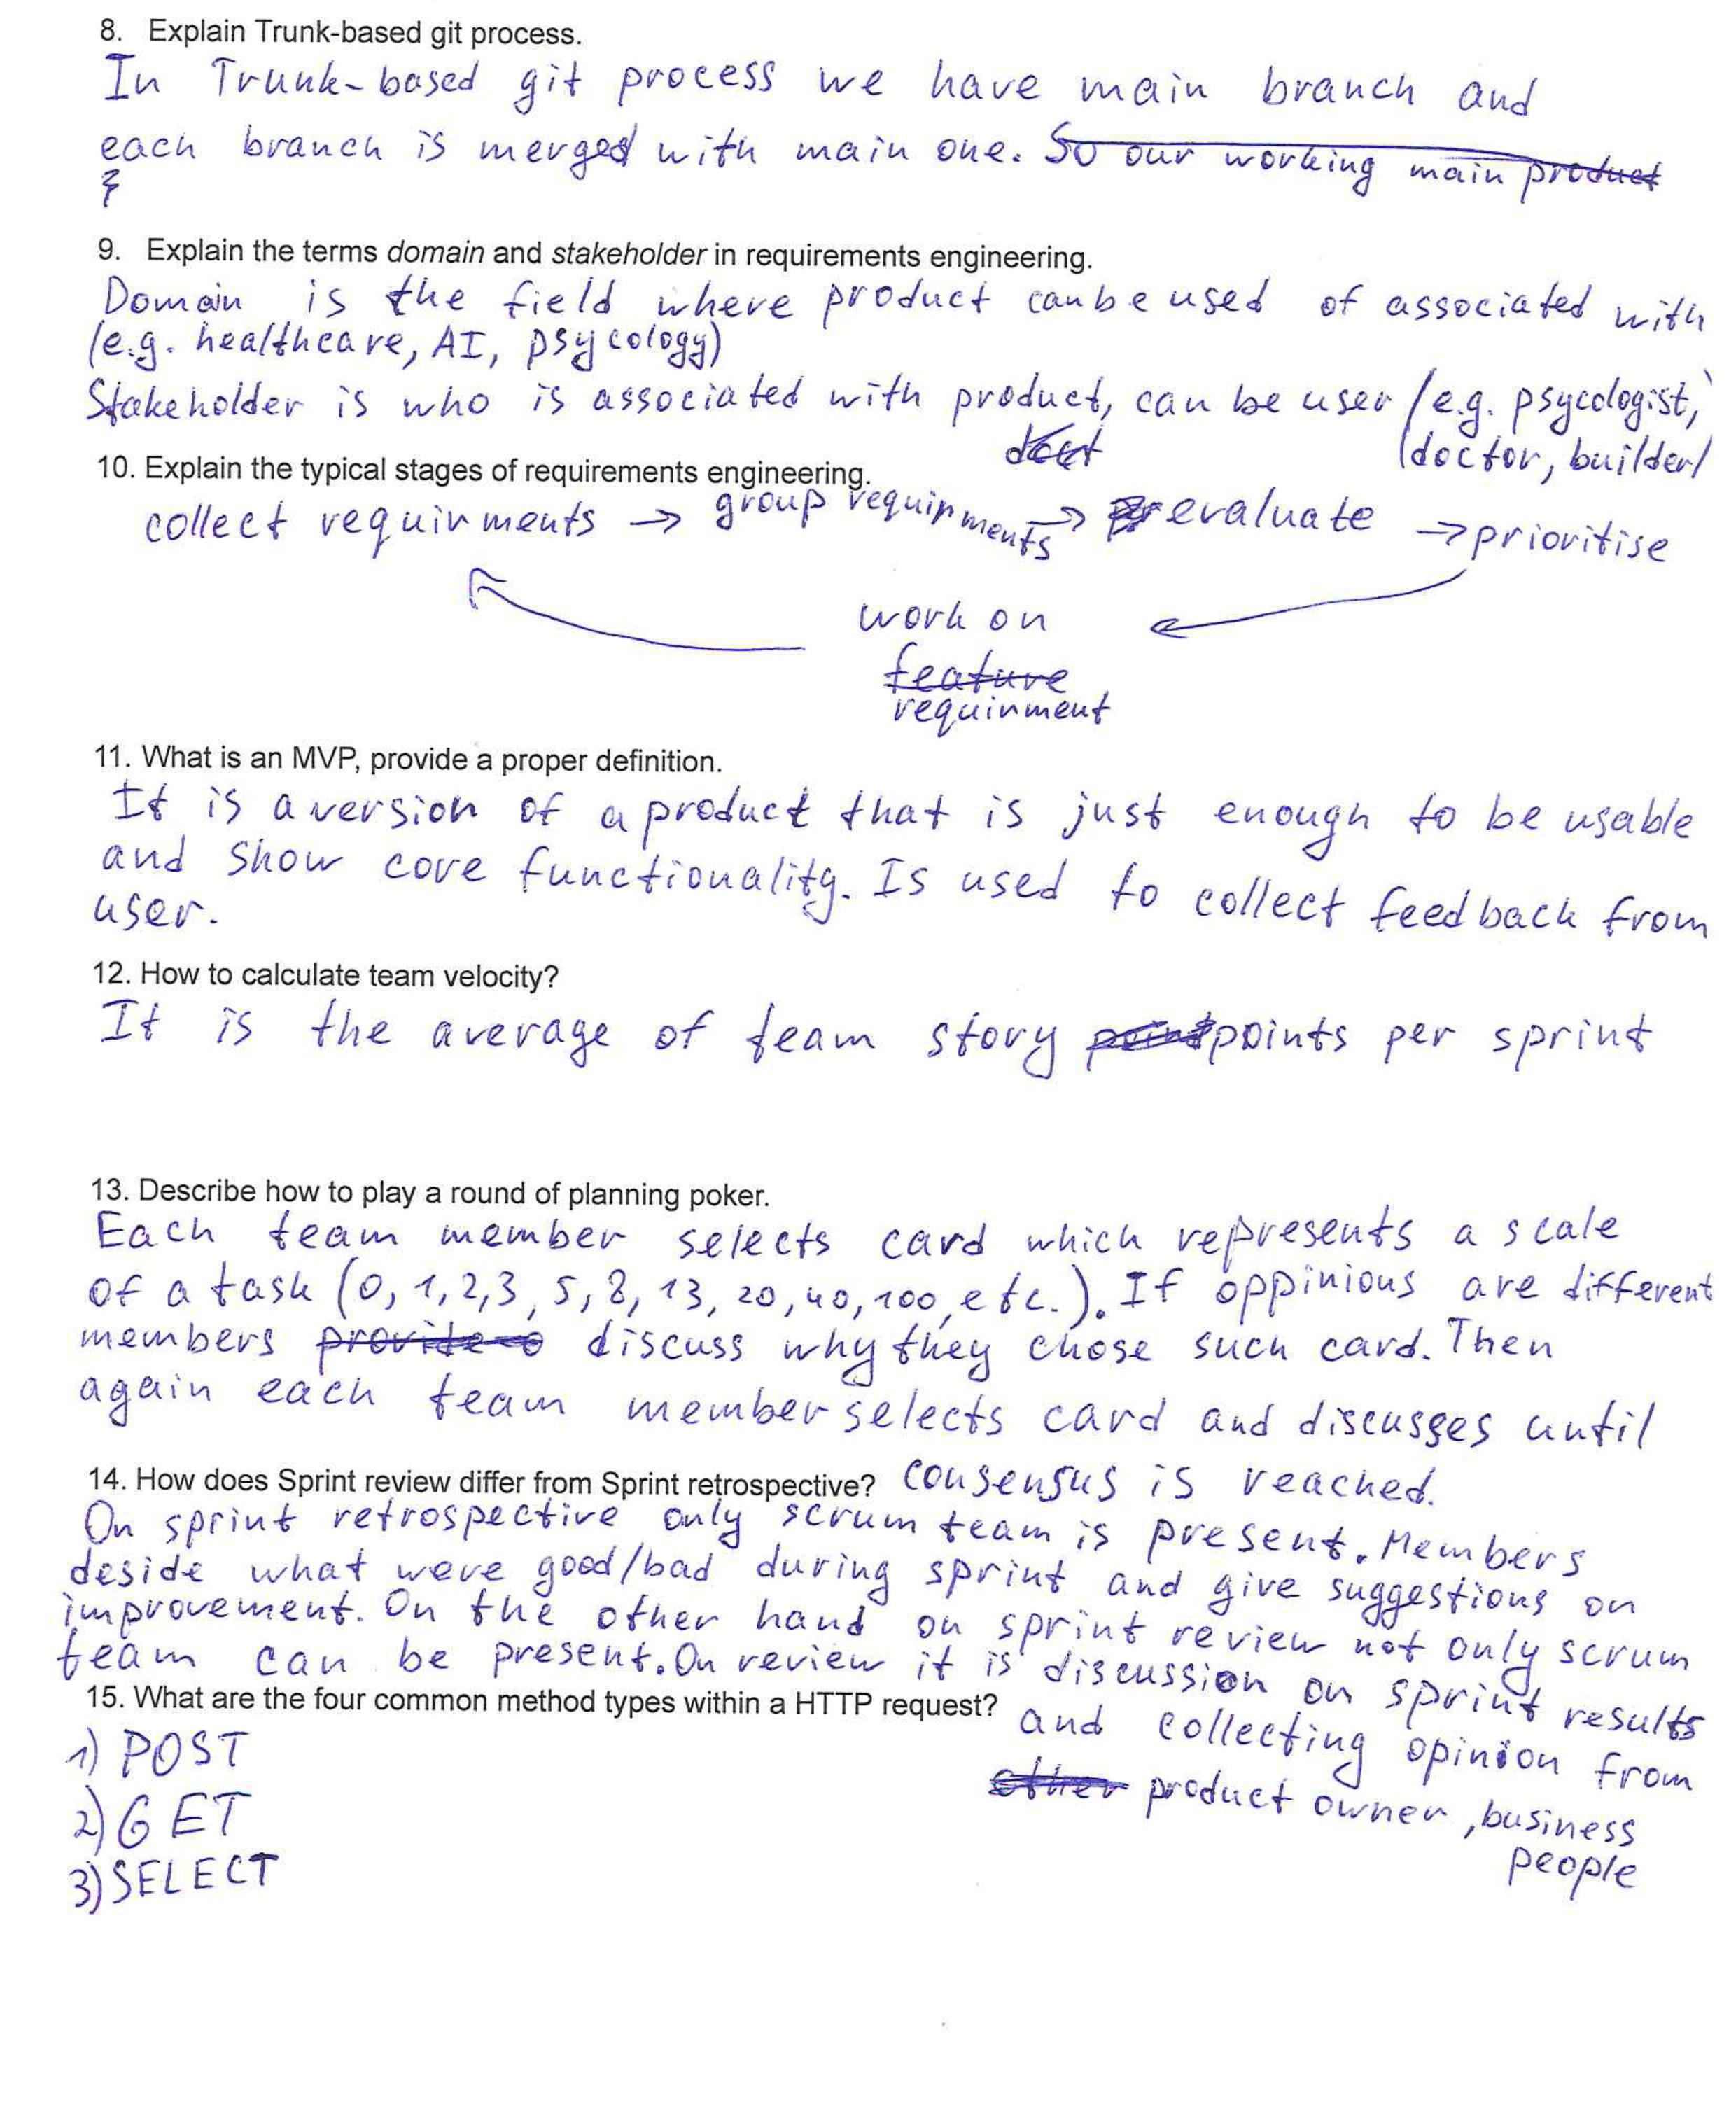 8. Explain Trunk-based git process.
In Trunk-based git process we have main branch and
each branch is merged with main one. So our working main product
9. Explain the terms domain and stakeholder in requirements engineering.
Domain is the field where product can be used of associated with
(e.g. healthcare, AI, psycology)
Stakeholder is who is associated with product, can be user (e.g. psycologist,
doctor, builder)
10. Explain the typical stages of requirements engineering.
collect requirments → group requirments → evaluate → prioritise
work on
feature
requirment
11. What is an MVP, provide a proper definition.
It is a version of a product that is just enough to be usable
and show core functionality. Is used to collect feedback from
user.
12. How to calculate team velocity?
It is the average of team story point points per sprint
13. Describe how to play a round of planning poker.
Each team member selects card which represents a scale
of a task (0, 1, 2, 3, 5, 8, 13, 20, 40, 100, etc.). If oppinious are different
members provide discuss why they chose such card. Then
again each team member selects card and discusses until
consensus is reached.
14. How does Sprint review differ from Sprint retrospective?
On sprint retrospective only scrum team is present. Members
deside what were good/bad during sprint and give suggestions on
improvement. On the other hand on sprint review not only scrum
team can be present. On review it is discussion on sprint results
and collecting opinion from
other product owner, business
people
15. What are the four common method types within a HTTP request?
1) POST
2) GET
3) SELECT